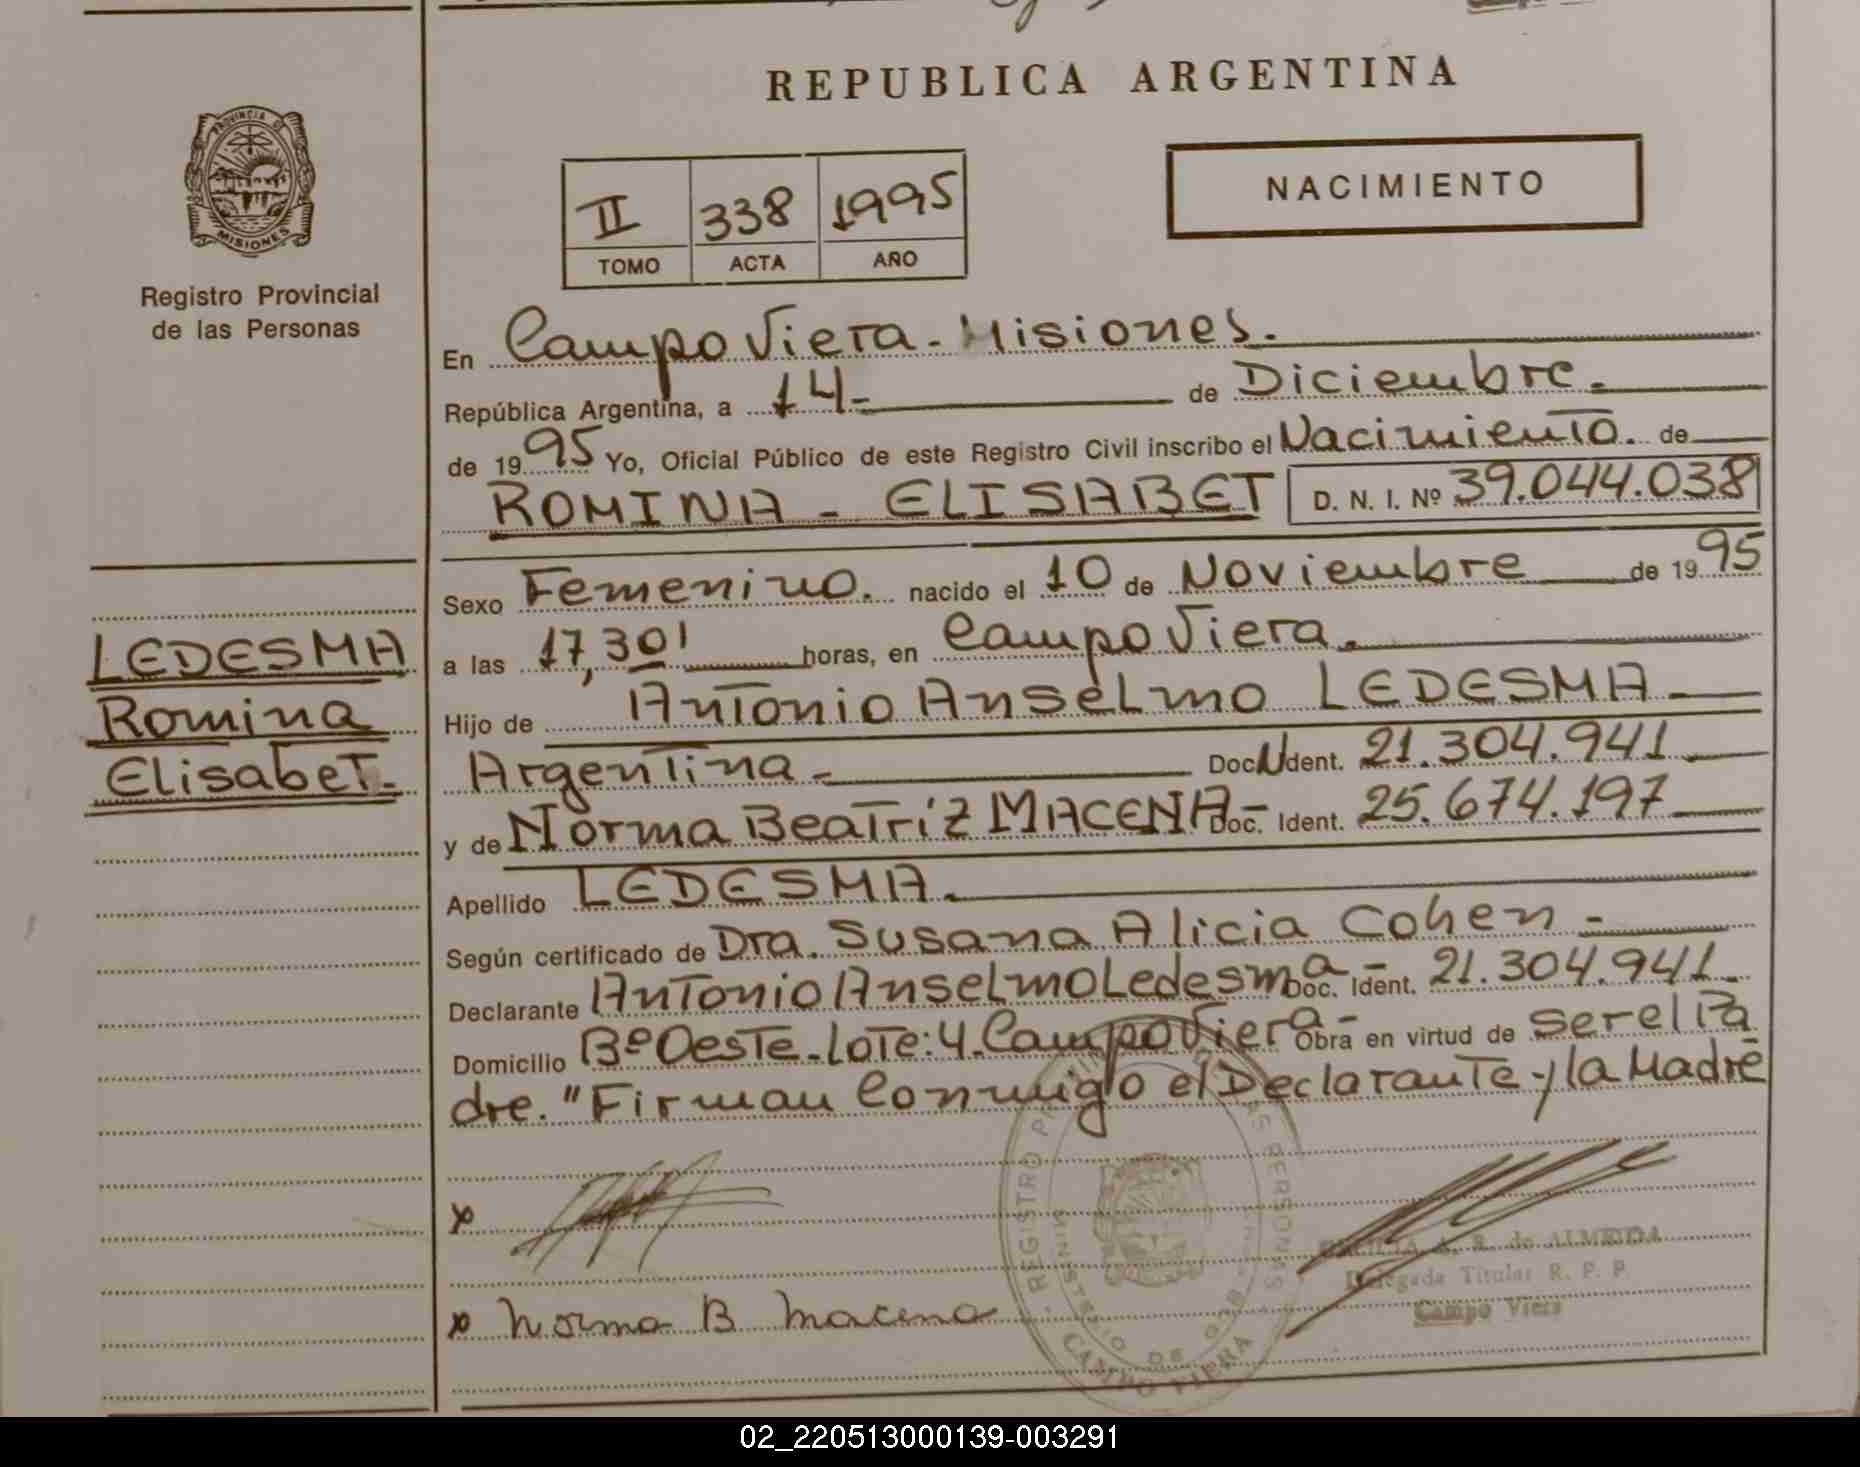 REPUBLICA ARGENTINA
PROVINCIA DE
MISIONES
Registro Provincial
de las Personas
II 338 1995
TOMO ACTA AÑO
NACIMIENTO
En Campo Viera - Misiones.
República Argentina, a 14- de Diciembre.
de 1995 Yo, Oficial Público de este Registro Civil inscribo el Nacimiento. de
ROMINA - ELISABET D. N. I. Nº 39.044.038
Sexo Femenino. nacido el 10 de Noviembre de 1995
a las 17,30' horas, en Campo Viera.
Hijo de Antonio Anselmo LEDESMA -
Argentina - Doc. N Ident. 21.304.941
y de Norma Beatríz MACENA - Doc. Ident. 25.674.197
Apellido LEDESMA.
Según certificado de Dra. Susana Alicia Cohen -
Declarante Antonio Anselmo Ledesma - Doc. Ident. 21.304.941
Domicilio Bº Oeste - Lote: 4. Campo Viera - Obra en virtud de ser el Pa
dre. "Firman Conmigo el Declarante y la Madre
LEDESMA
Romina
Elisabet -
x
x Norma B Macena
REGISTRO PERSONAS
MINISTERIO DE GOB
CAMPO VIERA
A. R. de ALMEIDA
Delegada Titular R. P. P.
Campo Viera
02_220513000139-003291